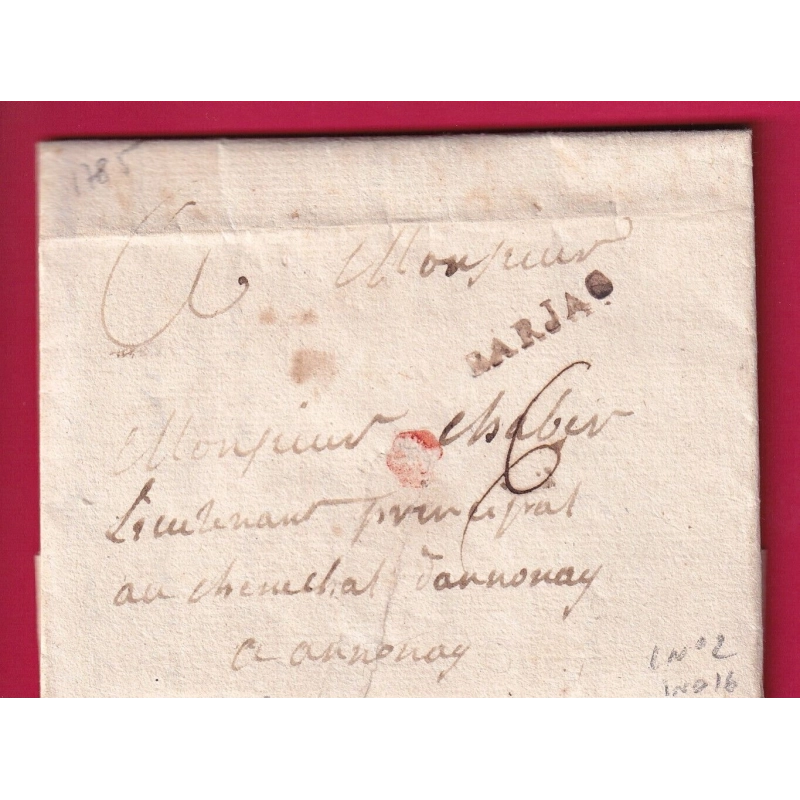 1785
A Monsieur
BARJAC
Monsieur chaber
6
Lieutenant principal
au chenechal dannonay
a annonay
L N° 2
IND 16